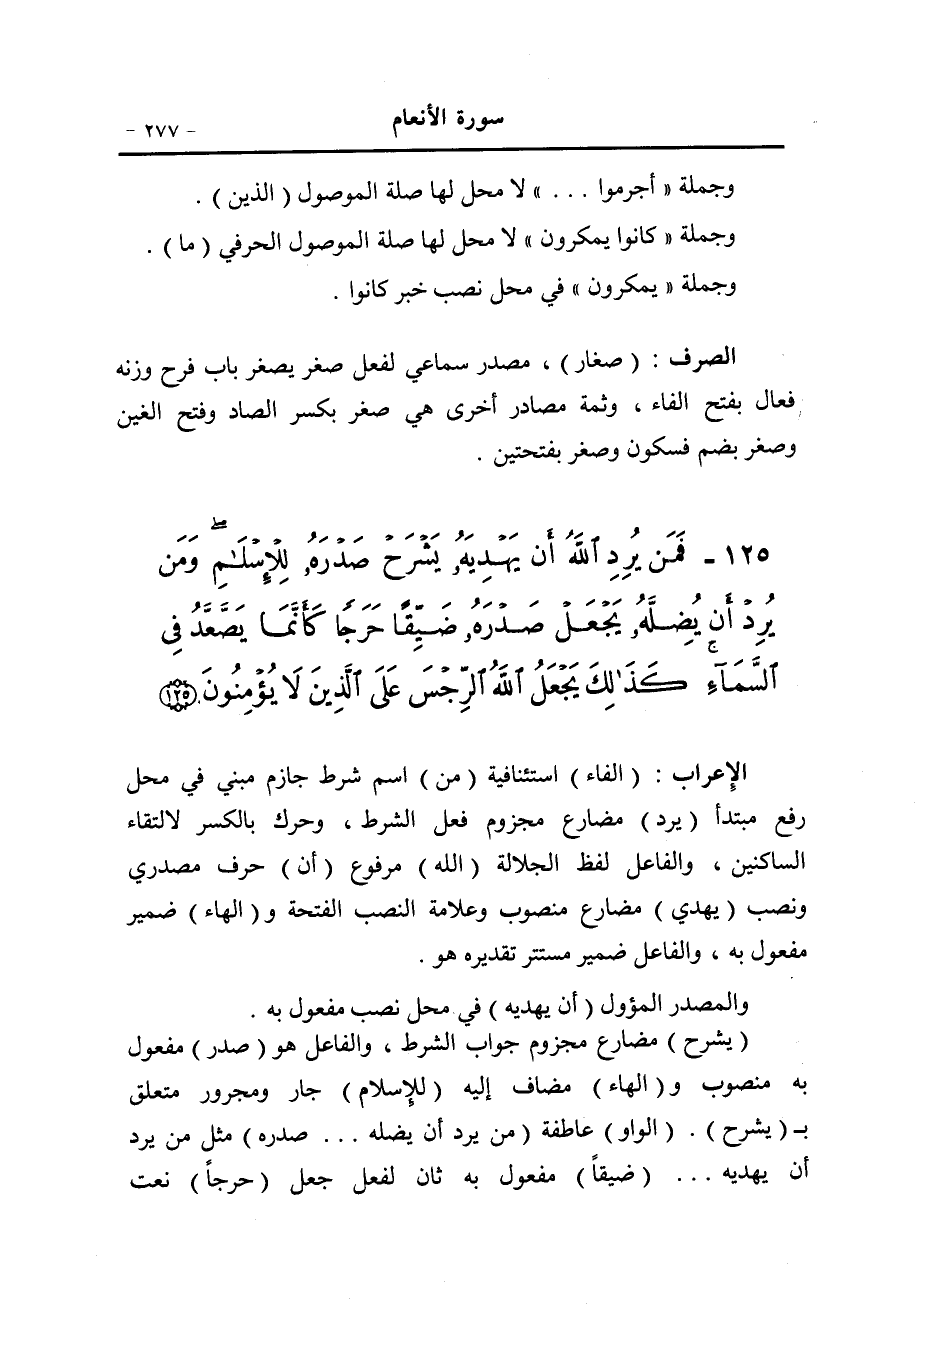 سورة الأنعام
- ٢٧٧ -
وجملة « أجرموا ... » لا محل لها صلة الموصول ( الذين ) .
وجملة « كانوا يمكرون » لا محل لها صلة الموصول الحرفي ( ما ) .
وجملة « يمكرون » في محل نصب خبر كانوا .
الصرف : ( صغار ) ، مصدر سماعي لفعل صغر يصغر باب فرح وزنه
فعال بفتح الفاء ، وثمة مصادر أخرى هي صغر بكسر الصاد وفتح الغين
وصغر بضم فسكون وصغر بفتحتين .
١٢٥ - فَمَن يُرِدِ ٱللَّهُ أَن يَهْدِيَهُۥ يَشْرَحْ صَدْرَهُۥ لِلْإِسْلَـٰمِ ۖ وَمَن
يُرِدْ أَن يُضِلَّهُۥ يَجْعَلْ صَدْرَهُۥ ضَيِّقًا حَرَجًا كَأَنَّمَا يَصَّعَّدُ فِى
ٱلسَّمَآءِ ۚ كَذَٰلِكَ يَجْعَلُ ٱللَّهُ ٱلرِّجْسَ عَلَى ٱلَّذِينَ لَا يُؤْمِنُونَ ١٢٥
الإعراب : ( الفاء ) استئنافية ( من ) اسم شرط جازم مبني في محل
رفع مبتدأ ( يرد ) مضارع مجزوم فعل الشرط ، وحرك بالكسر لالتقاء
الساكنين ، والفاعل لفظ الجلالة ( الله ) مرفوع ( أن ) حرف مصدري
ونصب ( يهدي ) مضارع منصوب وعلامة النصب الفتحة و ( الهاء ) ضمير
مفعول به ، والفاعل ضمير مستتر تقديره هو .
والمصدر المؤول ( أن يهديه ) في محل نصب مفعول به .
( يشرح ) مضارع مجزوم جواب الشرط ، والفاعل هو ( صدر ) مفعول
به منصوب و ( الهاء ) مضاف إليه ( للإسلام ) جار ومجرور متعلق
بـ ( يشرح ) . ( الواو ) عاطفة ( من يرد أن يضله ... صدره ) مثل من يرد
أن يهديه ... ( ضيقاً ) مفعول به ثان لفعل جعل ( حرجاً ) نعت